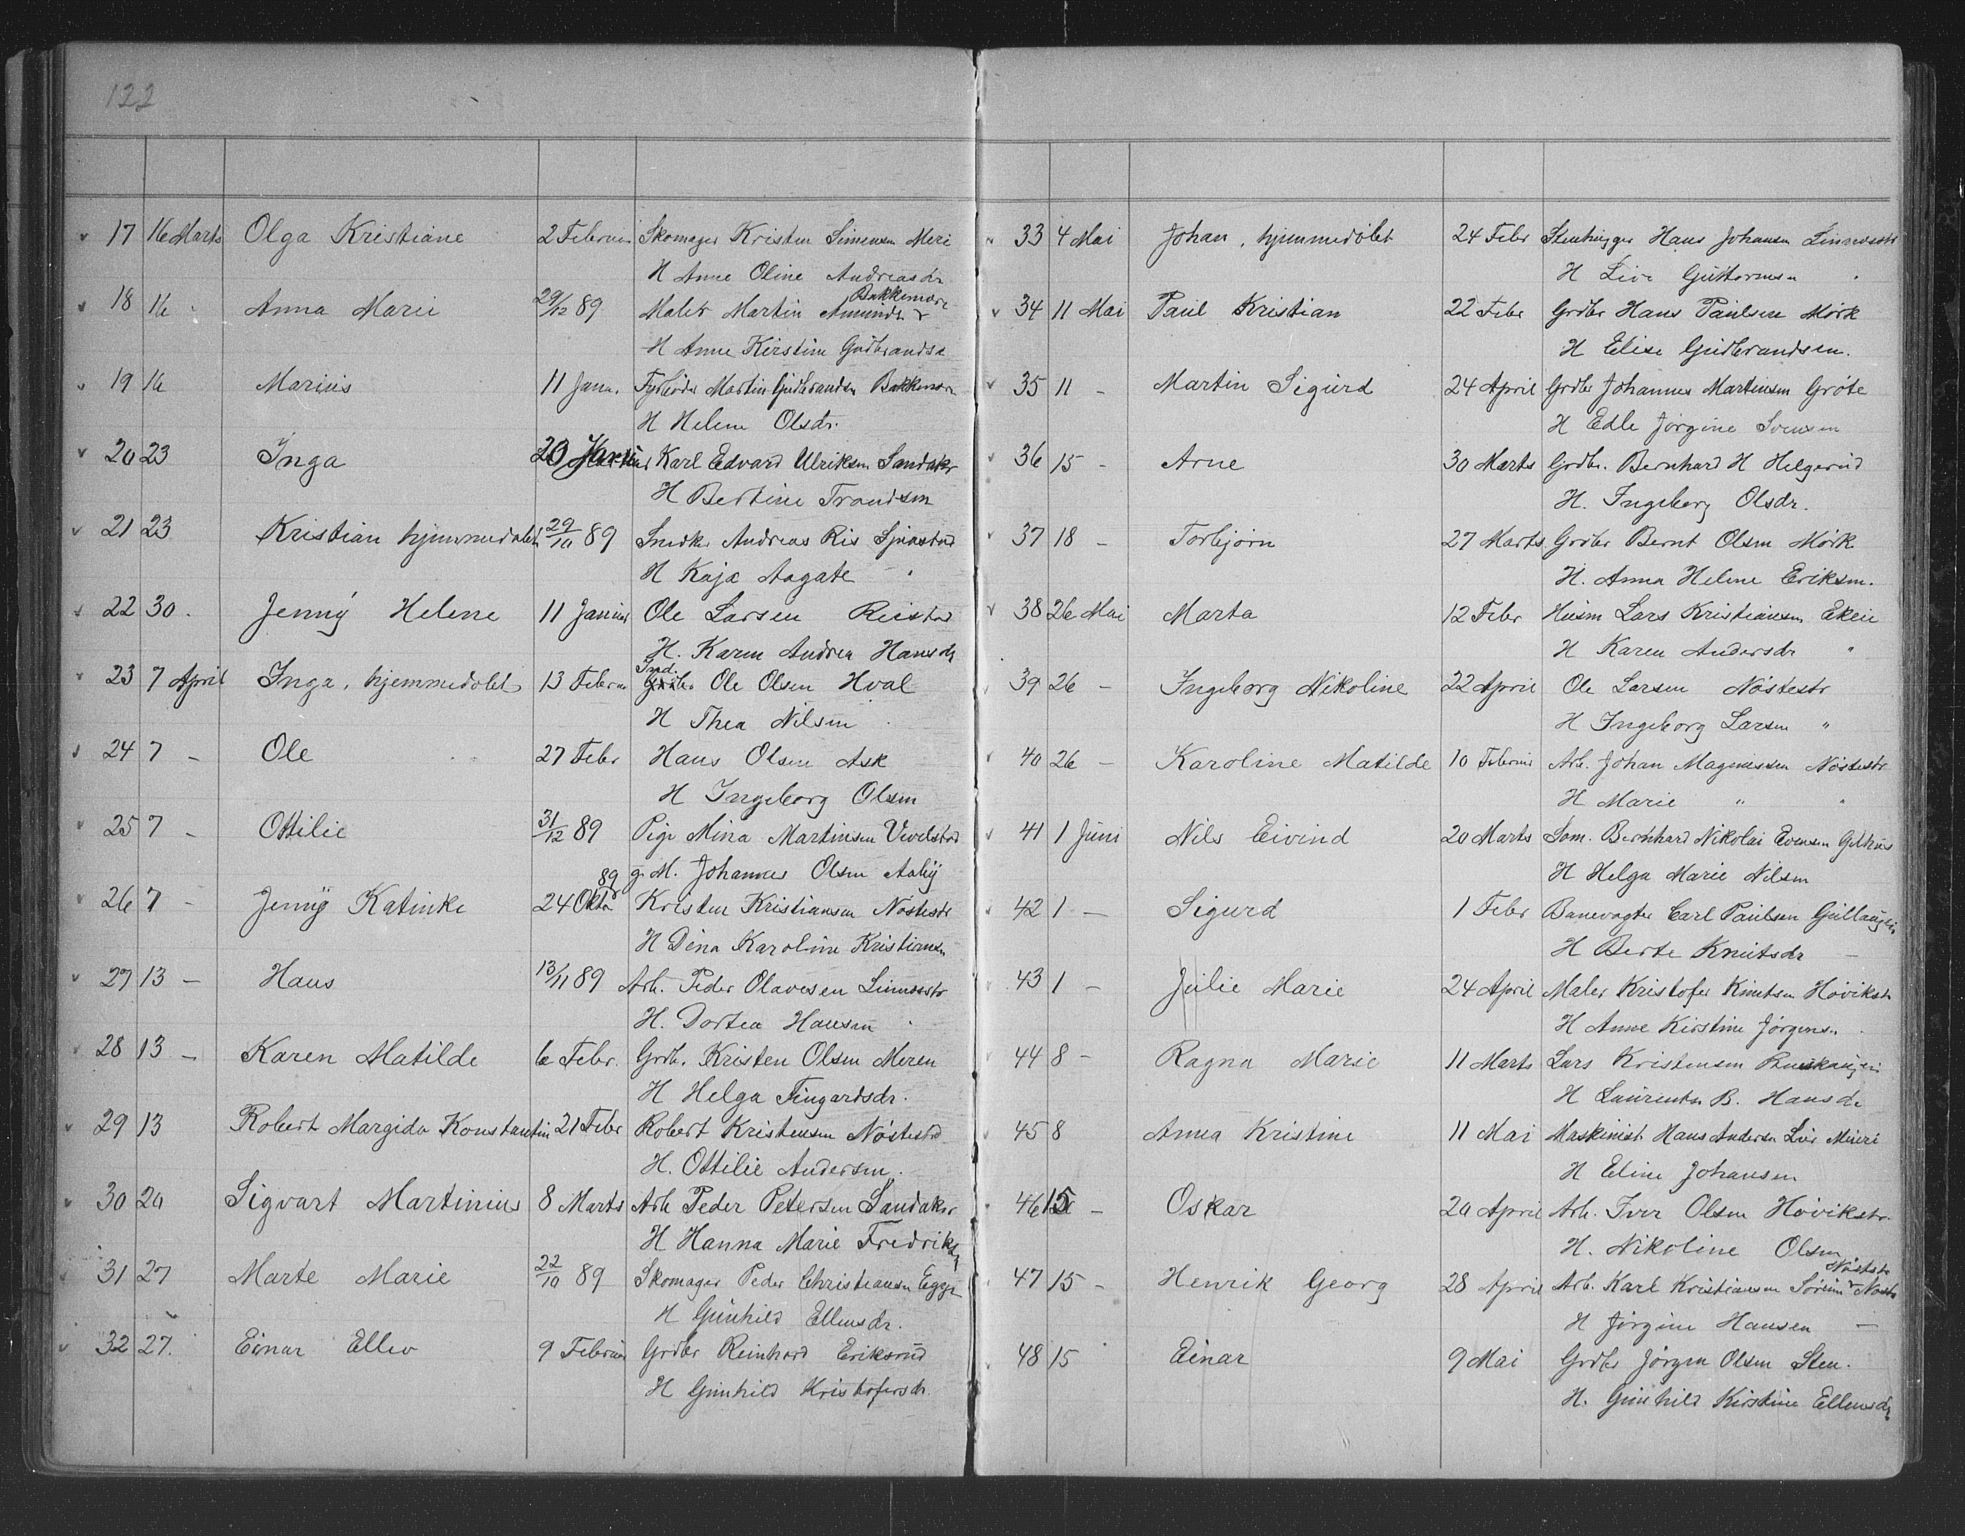 122
17 16 Marts Olga Kristiane 2 Februar Skomager Kristen Simensen Meri
H Anne Oline Andreasdr
18 16 - Anna Marie 29/12 89 Maler Martin Amundsr Bakkemoen
H Anne Kirstine Gudbrandsd
19 16 Marius 11 Janu. Fyrböder Martin Gudbrandsen Bakkemoen
H Helene Olsdr.
20 23 Inga 20 Karl Edvard Ulriksen Sandaker
H Bertine Trondsen
21 23 Kristian hjemmedöbt 29/10 89 Snedker Andreas Ris
H Kaja Aagate "
22 30. Jenny Helene 11 Januar Ole Larsen Reistad
H. Karen Andrea Hansdr
23 7 April Inga, hjemmedöbt 13 Februar Ind. Ole Olsen Hval
H Thea Nilsen
24 7 - Ole 27 Febr Hans Olsen Ask
H Ingeborg Olsen
25 7 - Ottilie 31/12 89 Pige Mina Martinsen Vivelstad
g. M. Johannes Olsen Aaby
26 7 - Jenny Katinke 24 Oktb 89 Kristen Kristiansen Nöstestr
H Dina Karoline Kristiansen
27 13 - Hans 13/11 89 Arb. Peder Olavesen Linnesstr
H. Dortea Hansen "
28 13 - Karen Matilde 6 Febr. Grdb. Kristen Olsen Meren
H Helga Fingardsdr.
29 13 Robert Margido Konstantin 21 Febr Robert Kristensen Nöstestr
H. Ottilie Andersen.
30 20 Sigvart Martinius 8 Marts Arb Peder Petersen Sandaker
H Hanna Marie Fredriksd
31 27 Marte Marie 22/10 89 Skomager Peder Christiansen Egge
H Gunhild Ellensdr.
32 27. Einar Ellev 9 Februar Grdbr Reinhard Eriksrud
H Gunhild Kristofersdr
33 4 Mai Johan, hjemmedöbt 24 Febr Stenhugger Hans Johansen Linnesstr
H Live Guttormsen "
34 11 Mai Paul Kristian 22 Febr Grdbr Hans Paulsen Mörk
H Elise Gudbrandsen.
35 11 - Martin Sigurd 24 April Grdbr Johannes Martinsen Gröte
H Edle Jörgine Svensen
36 15 - Arne 30 Marts Grdbr. Bernhard H Helgerud
H. Ingeborg Olsdr.
37 18 - Torbjörn 27 Marts Grdbr Bernt Olsen Mörk
H. Anna Helene Eriksen.
38 26 Mai Marta 12 Febr Husm Lars Kristiansen Ekeie
H Karen Andersdr "
39 26 - Ingeborg Nikoline 22 April Ole Larsen Nöstestr
H Ingeborg Larsen "
40 26 - Karoline Matilde 10 Februar Arb. Johan Magnussen Nöstestr
H Marie " "
41 1 Juni Nils Eivind 20 Marts Söm. Bernhard Nikolai Evensen Gilhus
H Helga Marie Nilsen
42 1 - Sigurd 1 Febr Banevogter Carl Paulsen Gullaugeie
H Berte Knutsdr -
43 1 - Julie Marie 24 April Maler Kristofer Knutsen Hövikstr
H Anne Kirstine Jörgens. .
44 8 - Ragna Marie 11 Marts Lars Kristensen
H Laurentse B. Hansdr
45 8 Anna Kristine 11 Mai Maskinist Hans Andersen Lier Meieri
H Eline Johansen
46 15 - Oskar 20 April Arb. Iver Olsen Hövikstr.
H. Nikoline Olsen
47 15 - Henrik Georg 28 April Arb. Karl Kristiansen Nöstestr
H Jörgine Hansen -
48 15 Einar 9 Mai Grdbr Jörgen Olsen Sten.
H. Gunhild Kirstine Ellensdr